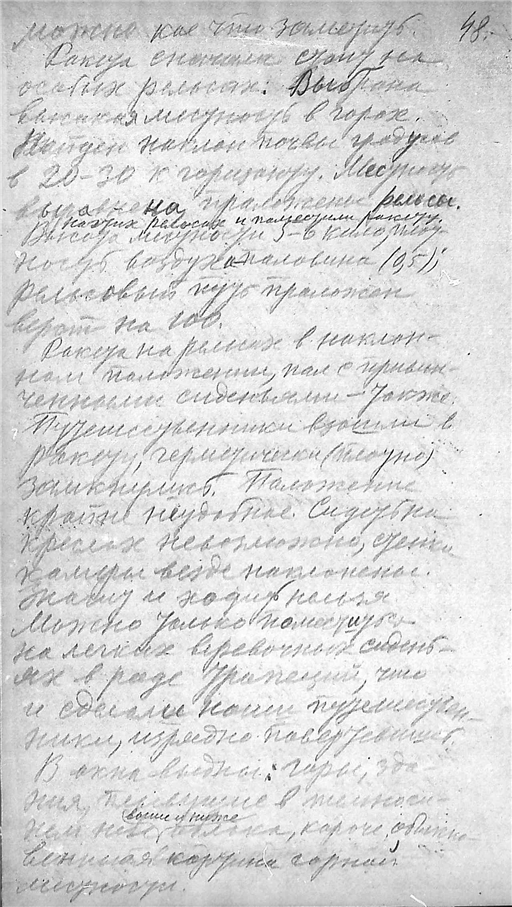 можно кое что заметить. 48.
Ракета сначала стоит на
особых рельсах. Выбрана
высокая местность в горах.
Найден наклон почвы градусов
в 20-30 к горизонту. Местность
выравнена, проложены рельсы.
На этих рельсах и поместили ракету.
Высота местности 5-6 кило, плот-
ность воздуха половина (0,5);
рельсовый путь проложен
верст на 100.
Ракета на рельсах в наклон-
ном положении, пол с привин-
ченными сиденьями - также.
Путешественники взошли в
ракету, герметически (плотно)
замкнулись. Положение
крайне неудобное. Сидеть на
креслах невозможно, стены
камеры везде наклонены.
Значит и ходить нельзя
Можно только поместиться
на легких веревочных сидень-
ях в роде трапеций, что
и сделали наши путешествен-
ники, изрядно повертевшись.
В окна видны: горы, зда-
ния, плывущие в темноси-
нем небе выше и ниже облака, короче, обыкно-
венная картина горной
местности.